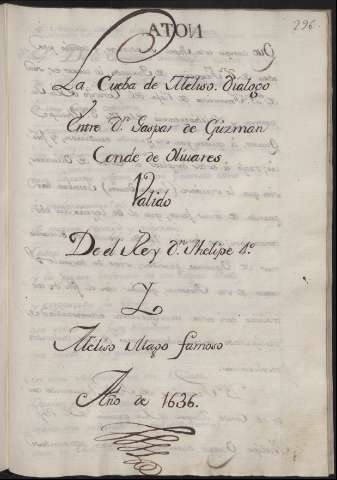 296.
La Cueba de Meliso. Dialogo
Entre Dn. Gaspar de Guzman
Conde de Olivares.
Valido
De el Rey Dn. Phelipe 4o.
Y
Meliso Mago famoso
Año de 1636.